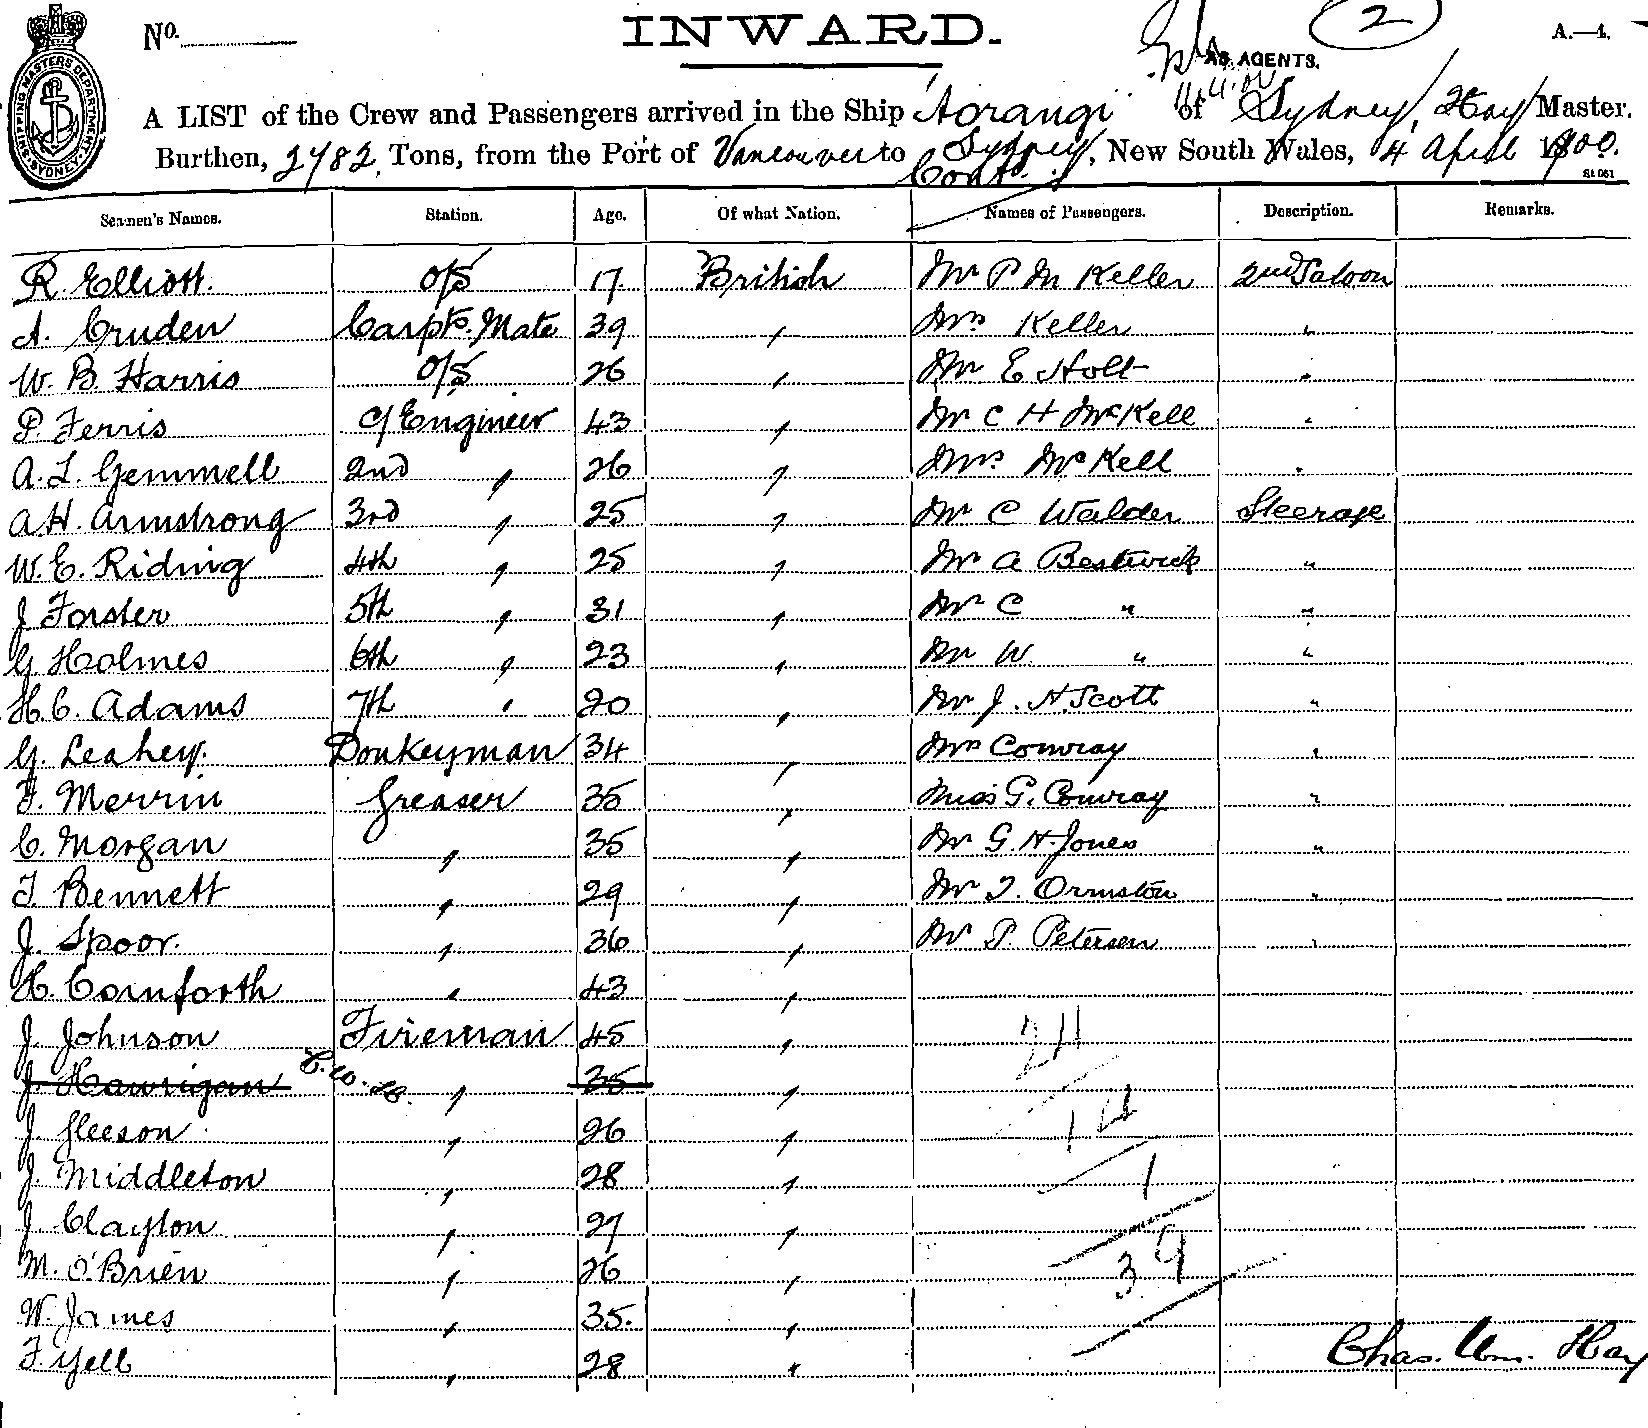 No. INWARD. 2 A.—4.
AS AGENTS.
A LIST of the Crew and Passengers arrived in the Ship Aorangi of Sydney, Hay Master.
Burthen, 2782 Tons, from the Port of Vancouver to Sydney, New South Wales, 4 April 1900.
Contd.
St 061
SHIPPING MASTERS DEPARTMENT SYDNEY
Seamen's Names. Station. Age. Of what Nation. Names of Passengers. Description. Remarks.
R. Elliott. O/S 17 British Mr P M Keller 2nd Saloon
A. Cruden Carptr. Mate 39 " Mrs Keller "
W. B. Harris O/S 26 " Mr E Holt "
P. Ferris C/Engineer 43 " Mr C H McKell "
A. L. Gemmell 2nd " 26 " Mrs McKell "
A H. Armstrong 3rd " 25 " Mr C Walder Steerage
W. E. Riding 4th " 25 " Mr A Bestwick "
J Forster 5th " 31 " Mr C " "
G. Holmes 6th " 23 " Mr W. " "
H. C. Adams 7th " 20 " Mr J. H. Scott "
G. Leahey. Donkeyman 34 " Mrs Conway "
F. Merrin Greaser 35 " Miss G. Conway "
C. Morgan " 35 " Mr G. H. Jones "
T. Bennett " 29 " Mr T. Ormston "
J. Spoor. " 36 " Mr P Petersen "
H. Cornforth " 43 "
J. Johnson Fireman 45 "
J. Hawrigan C.W.H. " 35 "
J. Gleeson " 26 "
J. Middleton " 28 "
J. Clayton " 27 "
M. O'Brien " 26 "
W. James " 35. "
F. Yell " 28 "
24
14
1
39
Chas. Wm. Hay